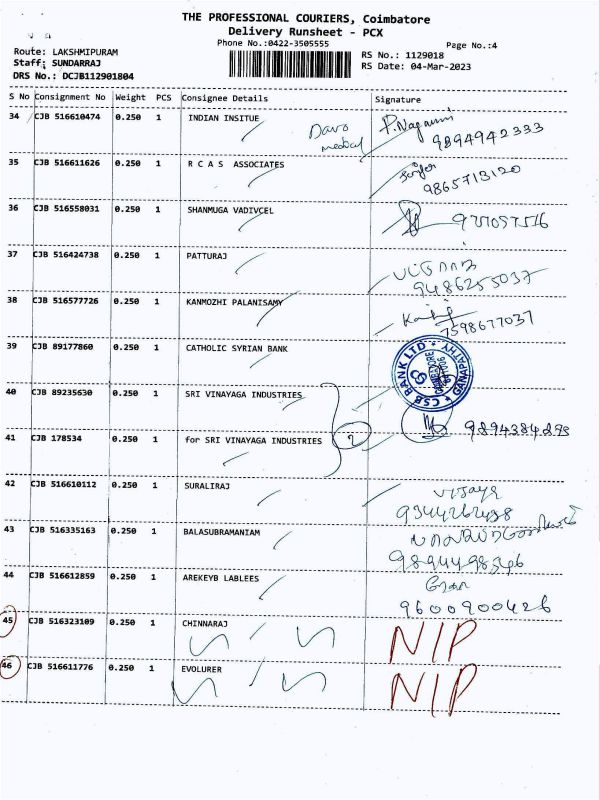 THE PROFESSIONAL COURIERS, Coimbatore
Delivery Runsheet - PCX
Phone No.:0422-3505555
Page No.:4
Route: LAKSHMIPURAM
RS No.: 1129018
Staff: SUNDARRAJ
RS Date: 04-Mar-2023
DRS No.: DCJB112901804
S No Consignment No Weight PCS Consignee Details Signature
34 CJB 516610474 0.250 1 INDIAN INSITUE
9894942333
35 CJB 516611626 0.250 1 R C A S ASSOCIATES
9865713120
36 CJB 516558031 0.250 1 SHANMUGA VADIVCEL
37 CJB 516424738 0.250 1 PATTURAJ
9486255037
38 CJB 516577726 0.250 1 KANMOZHI PALANISAMY
7598677037
39 CJB 89177860 0.250 1 CATHOLIC SYRIAN BANK
CSB BANK LTD GANAPATHY
40 CJB 89235630 0.250 1 SRI VINAYAGA INDUSTRIES
2 9894384293
41 CJB 178534 0.250 1 for SRI VINAYAGA INDUSTRIES
42 CJB 516610112 0.250 1 SURALIRAJ
43 CJB 516335163 0.250 1 BALASUBRAMANIAM
44 CJB 516612859 0.250 1 AREKEYB LABLEES
9600900426
45 CJB 516323109 0.250 1 CHINNARAJ N/P
46 CJB 516611776 0.250 1 EVOLURER N/P